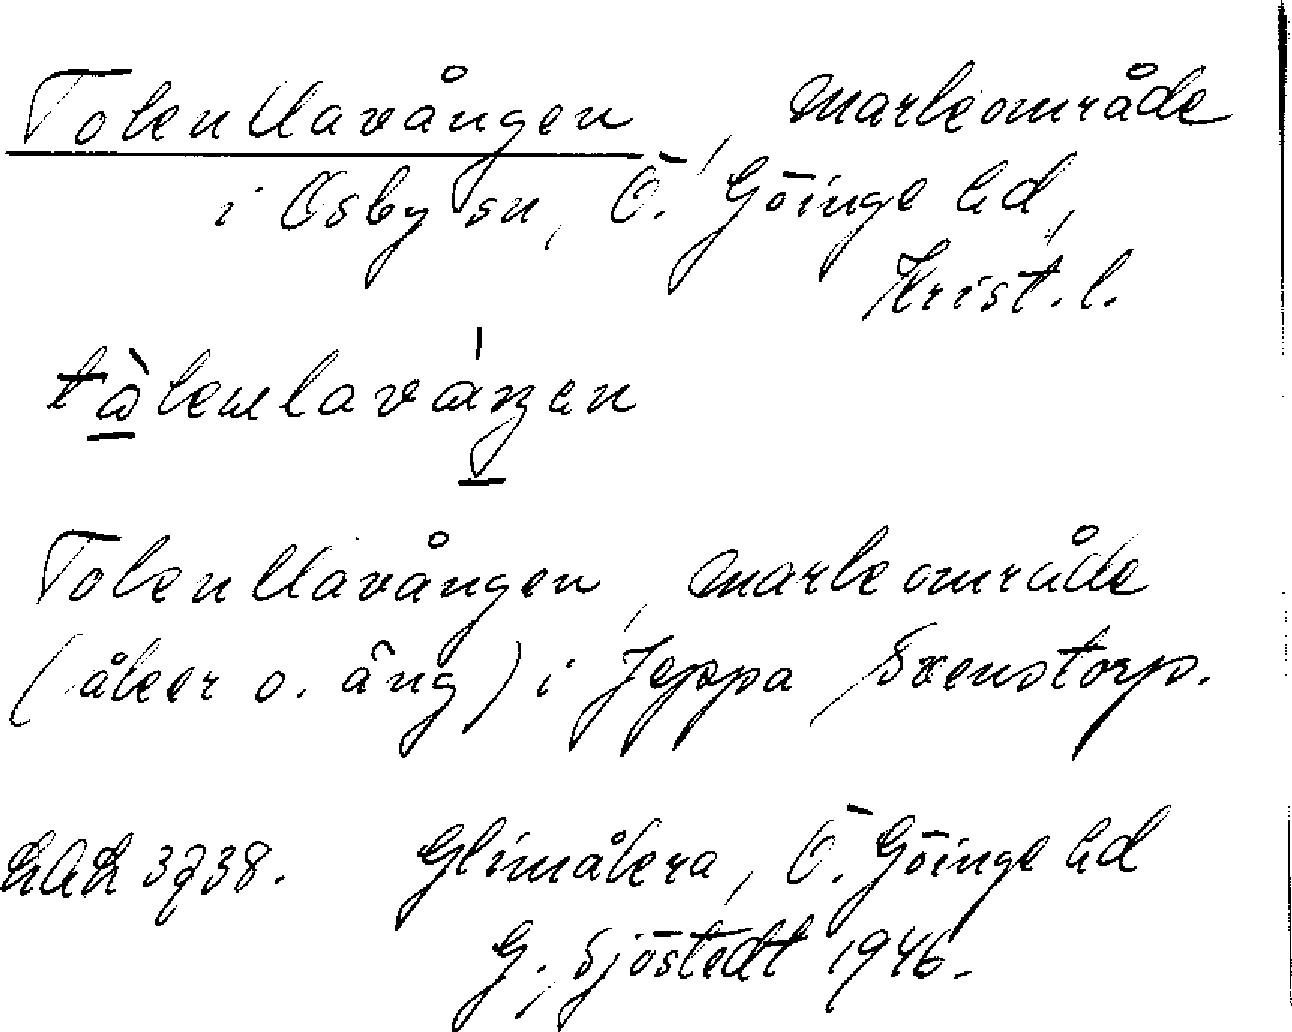 Tokenllavången, markområde
i Osby sn, Ö. Göinge hd,
Krist. l.
Tokenllavången, markområde
(åker o. äng) i Jeppa Svenstorp.
LAL 3738. Glimåkra, Ö. Göinge hd
G. Sjöstedt 1946.